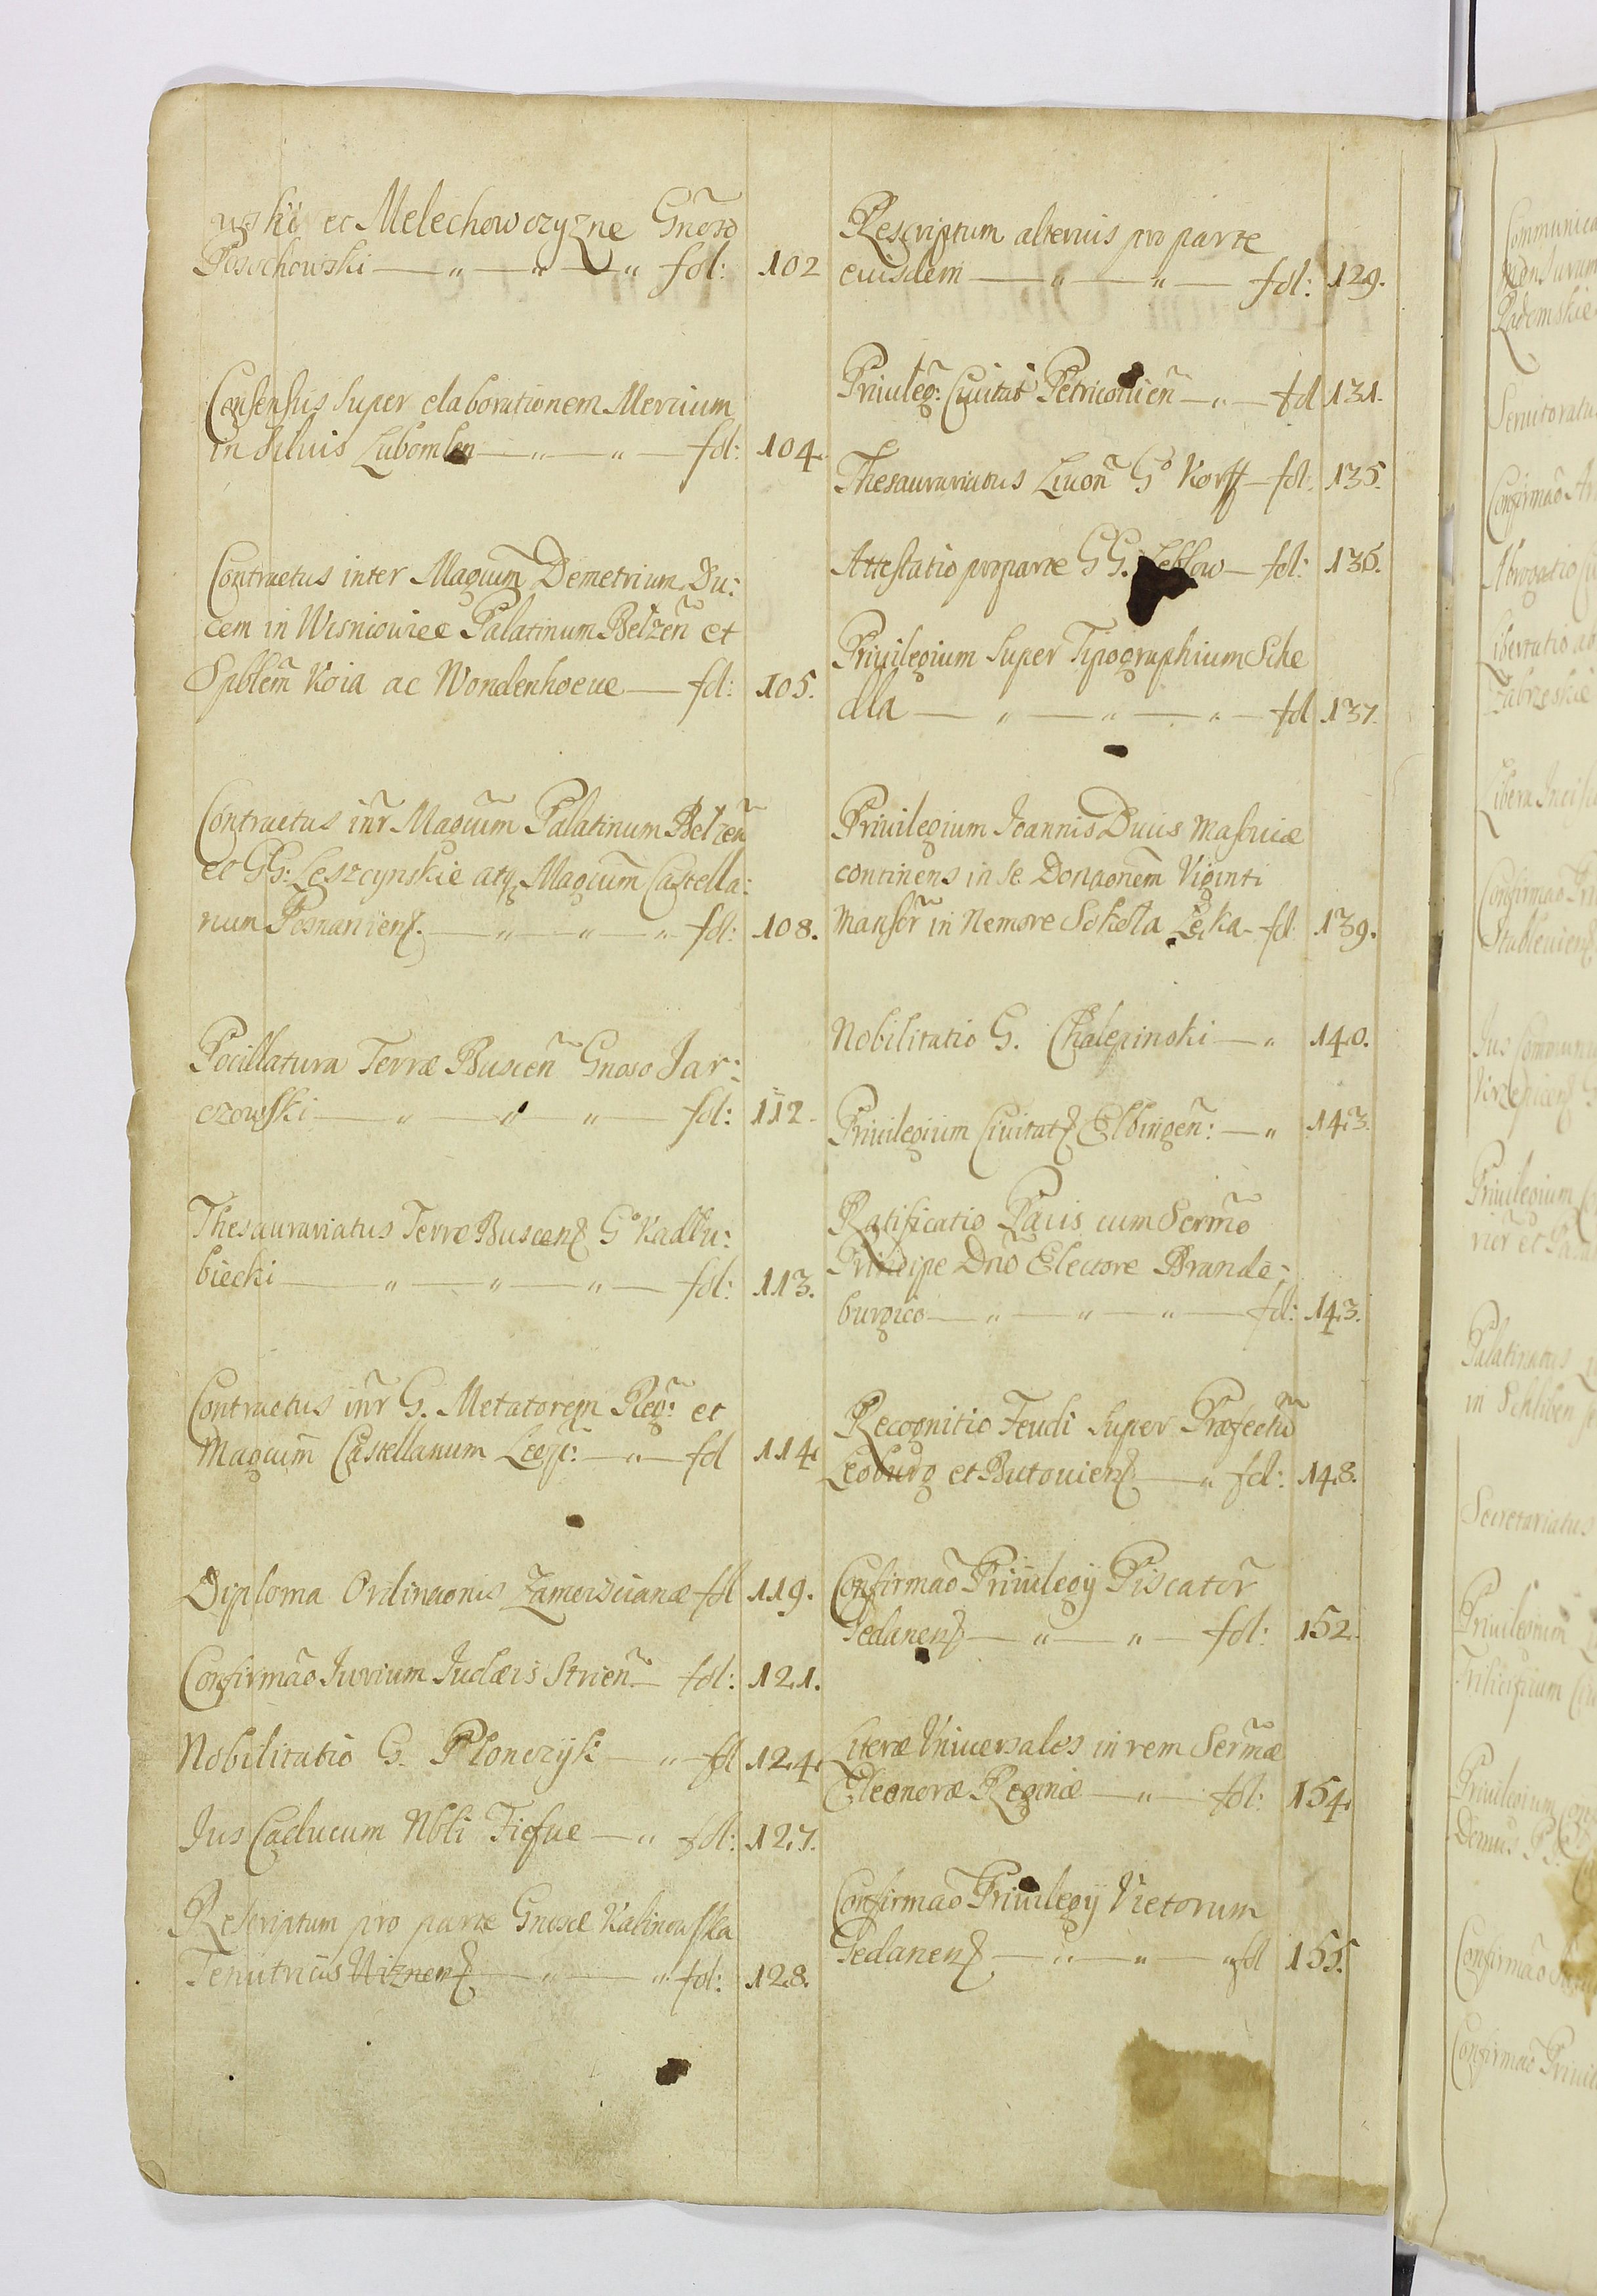 wski et Melechowczyzne Gnoso
Posochowski — „ — „ — „ fol: 102
Consensus super elaborationem Mercium
in Siluis Lubomlen — „ — „ — fol: 104.
Contractus inter Magcum Demetrium Du:
cem in Wisniowiec Palatinum Belzen et
Spblem Koia ac Wondenhoeue — fol: 105.
Contractus inr Magcum Palatinum Belzen
et GG: Leszcynskie atq Magcum Castella:
num Posnaniens. — „ — „ — „ fol: 108.
Pocillatura Terræ Buscen Gnoso Jar:
czowski — „ — „ — „ — fol: 112.
Thesaurariatus Terræ Buscens Go Kadłu:
biecki — „ — „ — „ — fol: 113.
Contractus inr G. Metatorem Reg: et
Magcum Castellanum — „ — fol 114.
Diploma Ordinaonis Zamoiscianæ fol 119.
Confirmao Iurium Judæis Strien — fol: 121.
Nobilitatio G. Płonczyk — „ fol 124.
Jus Caducum Nbli Fiefue — „ fol: 127.
Rescriptum pro parte Gnosæ Kalinowska
Tenutricis Wiznens — „ — „ fol: 128.
Rescriptum alterius pro parte
eiusdem — „ — „ — fol: 129.
Priuileg: Ciuitat Petricouien — „ — fol 131.
Thesaurariatus Liuon Go Korff — fol: 135.
Attestatio pro parte GG. — fol: 136.
Priuilegium super Tipographium Sche
dla — „ — „ — „ — fol 137.
Priuilegium Joannis Ducis Masouiæ
continens in se Donaonem Viginti
Mansor in Nemore Sokola Łąka — fol 139.
Nobilitatio G. Chalepinski — „ 140.
Priuilegium Ciuitats Elbingen: — „ 143.
Ratificatio Pacis cum Sermo
Principe Dno Electore Brande:
burgico — „ — „ — „ — fol: 143.
Recognitio Feudi super Præfectu
Leoburg et Butouiens — „ fol: 148.
Confirmao Priuilegij Piscator
Gedanens — „ — „ — fol: 152.
Literæ Vniuersales in rem Sermæ
Eleonoræ Reginæ — „ — fol: 154.
Confirmao Priuilegij Vietorum
Gedanens — „ — „ — „ fol 155.
Rademskie
Seruitoratus
Confirmao
Zabrzeskie
Libera
Confirmao
Jus
Priuilegium
Palatinatus
in Schliben
Secretariatus
Priuilegium
Priuilegium
Confirmao
Confirmao